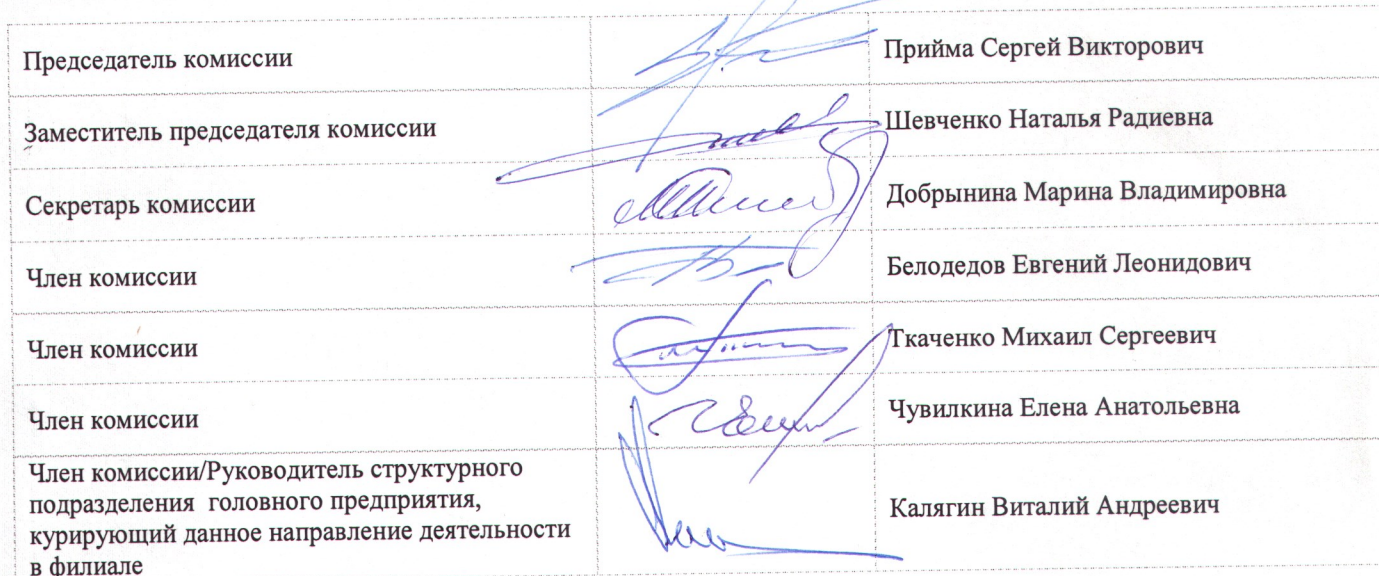 Председатель комиссии Прийма Сергей Викторович
Заместитель председателя комиссии Шевченко Наталья Радиевна
Секретарь комиссии Добрынина Марина Владимировна
Член комиссии Белодедов Евгений Леонидович
Член комиссии Ткаченко Михаил Сергеевич
Член комиссии Чувилкина Елена Анатольевна
Член комиссии/Руководитель структурного
подразделения головного предприятия,
курирующий данное направление деятельности
в филиале
Калягин Виталий Андреевич